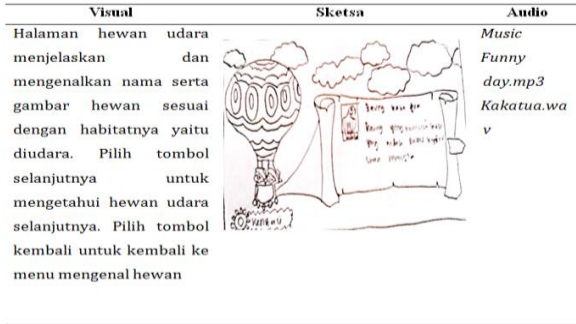 Visual Sketsa Audio
Halaman hewan udara
menjelaskan dan
mengenalkan nama serta
gambar hewan sesuai
dengan habitatnya yaitu
diudara. Pilih tombol
selanjutnya untuk
mengetahui hewan udara
selanjutnya. Pilih tombol
kembali untuk kembali ke
menu mengenal hewan
Burung
Burung
yang
Kembali
Music
Funny
day.mp3
Kakatua.wa
v